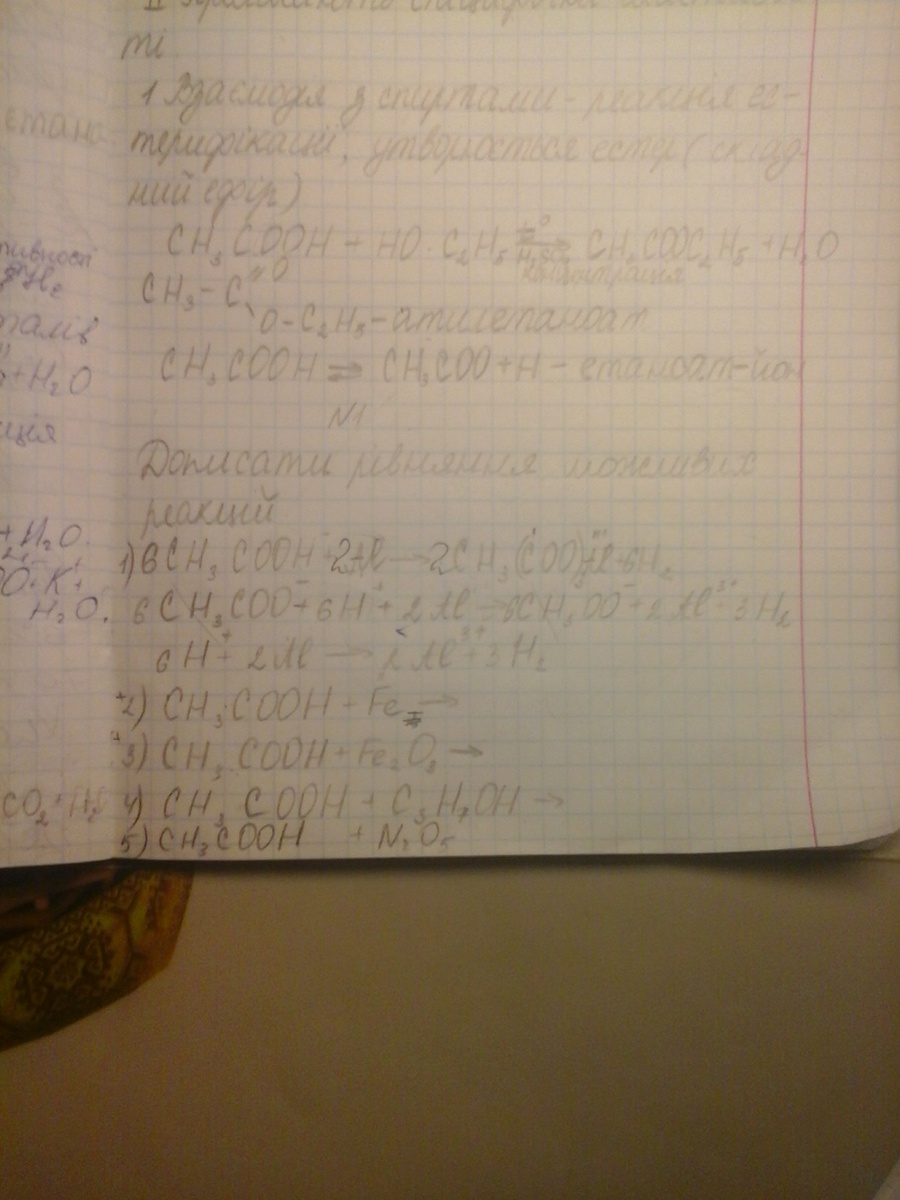 ті
1 Взаємодія з спиртами - реакція ес-
терифікації, утворюється естер (склад-
ний ефір)
CH₃COOH + HO·C₂H₅ ⇄ H₂SO₄ CH₃COOC₂H₅ + H₂O
CH₃-C =O
O-C₂H₅ - етилетаноат
CH₃COOH ⇌ CH₃COO + H - етаноат-йон
N1
Дописати рівняння можливих
реакцій
1) 6CH₃COOH + 2Al → 2CH₃(COO)₃Al + 6H₂
6CH₃COO⁻ + 6H⁺ + 2Al → 6CH₃OO⁻ + 2Al³⁺ 3H₂
6H⁺ 2Al → 2Al³⁺ 3H₂
+2) CH₃COOH + Fe →
+3) CH₃COOH + Fe₂O₃ →
4) CH₃COOH + C₃H₇OH →
5) CH₃COOH + N₂O₅
етано
тивності
H₂
талів
+H₂O
ція
+H₂O.
K⁺
H₂O.
CO₂